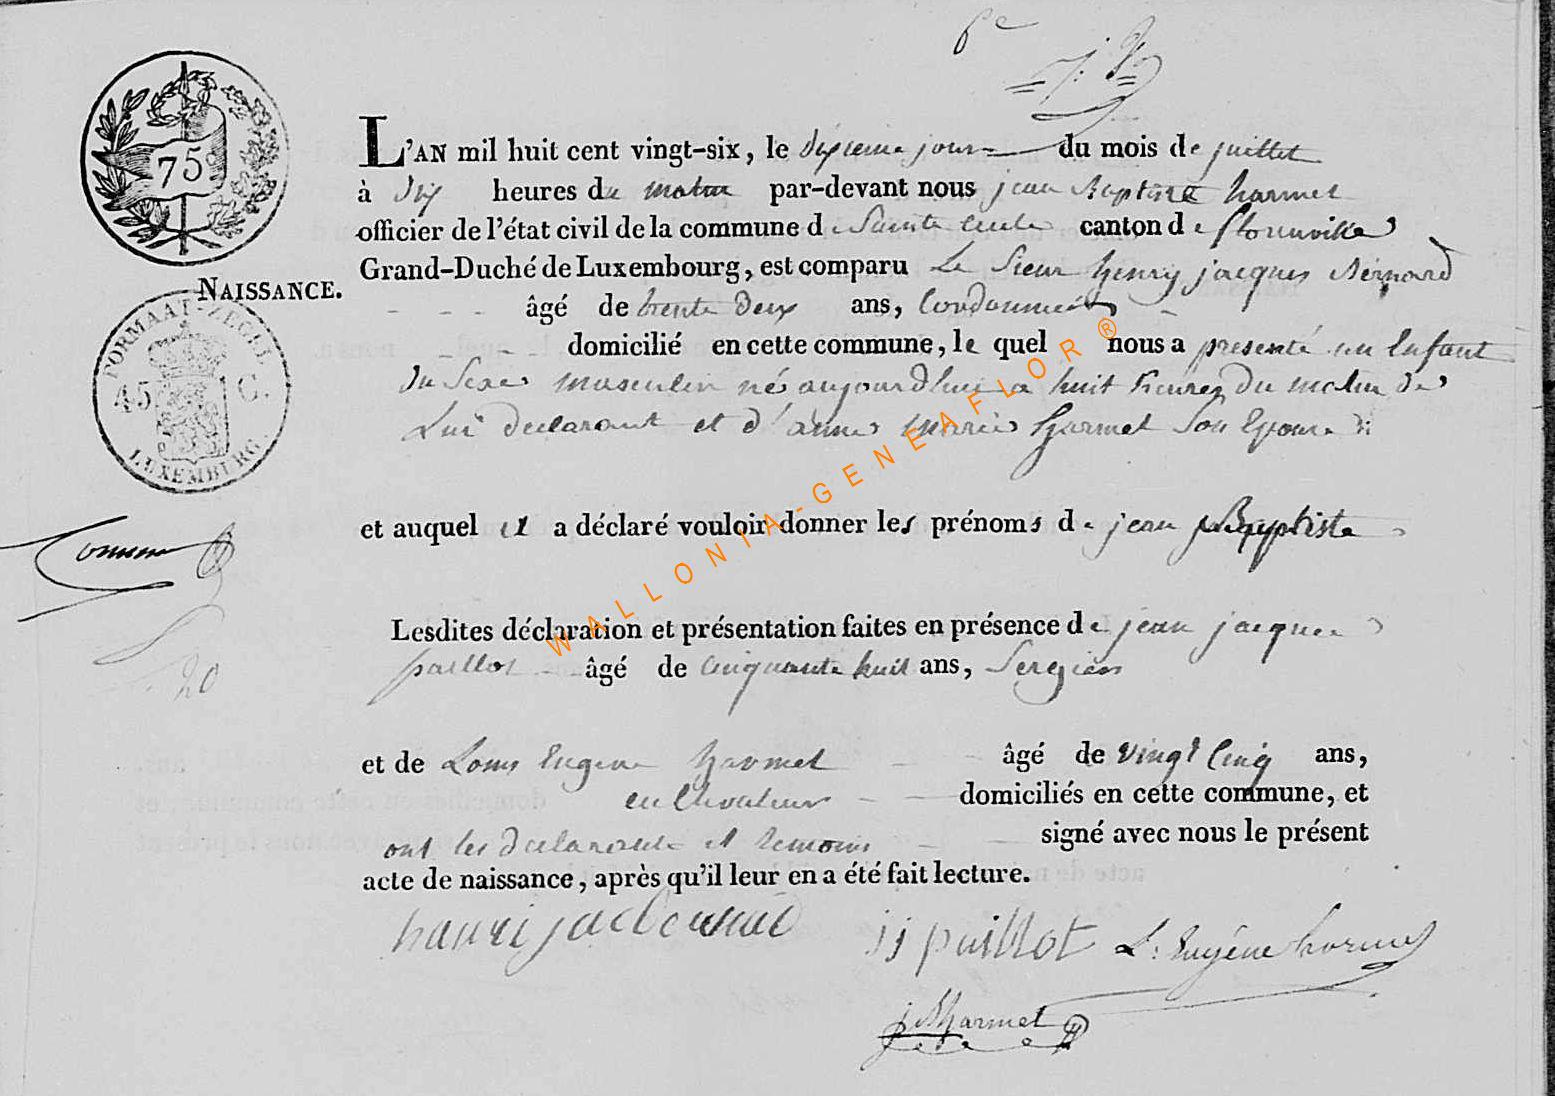 6e
75c
L'AN mil huit cent vingt-six, le dixieme jour du mois de juillet
à Dix heures du matin par-devant nous jean Baptiste harmel
officier de l'état civil de la commune de Sainte Cecile canton de florenville
Grand-Duché de Luxembourg, est comparu Le Sieur henry jacques Bernard
NAISSANCE.
âgé de trente Deux ans, Cordonnier
FORMAAT-ZEGEL
45 C.
LUXEMBURG
domicilié en cette commune, le quel nous a presenté un Enfant
du Sexe masculin né aujourd'hui a huit heures du matin de
Lui declarant et d'anne marie harmel Son Epouse
et auquel il a déclaré vouloir donner les prénoms de jean Baptiste
Lesdites déclaration et présentation faites en présence de jean jacques
paillot âgé de Cinquante huit ans,
et de Louis Eugene harmel âgé de vingt Cinq ans,
Cultivateur domiciliés en cette commune, et
ont les declarant et temoins signé avec nous le présent
acte de naissance, après qu'il leur en a été fait lecture.
jj paillot L: Eugêne harmel
jBharmel
20
WALLONIA-GENEAFLOR ®